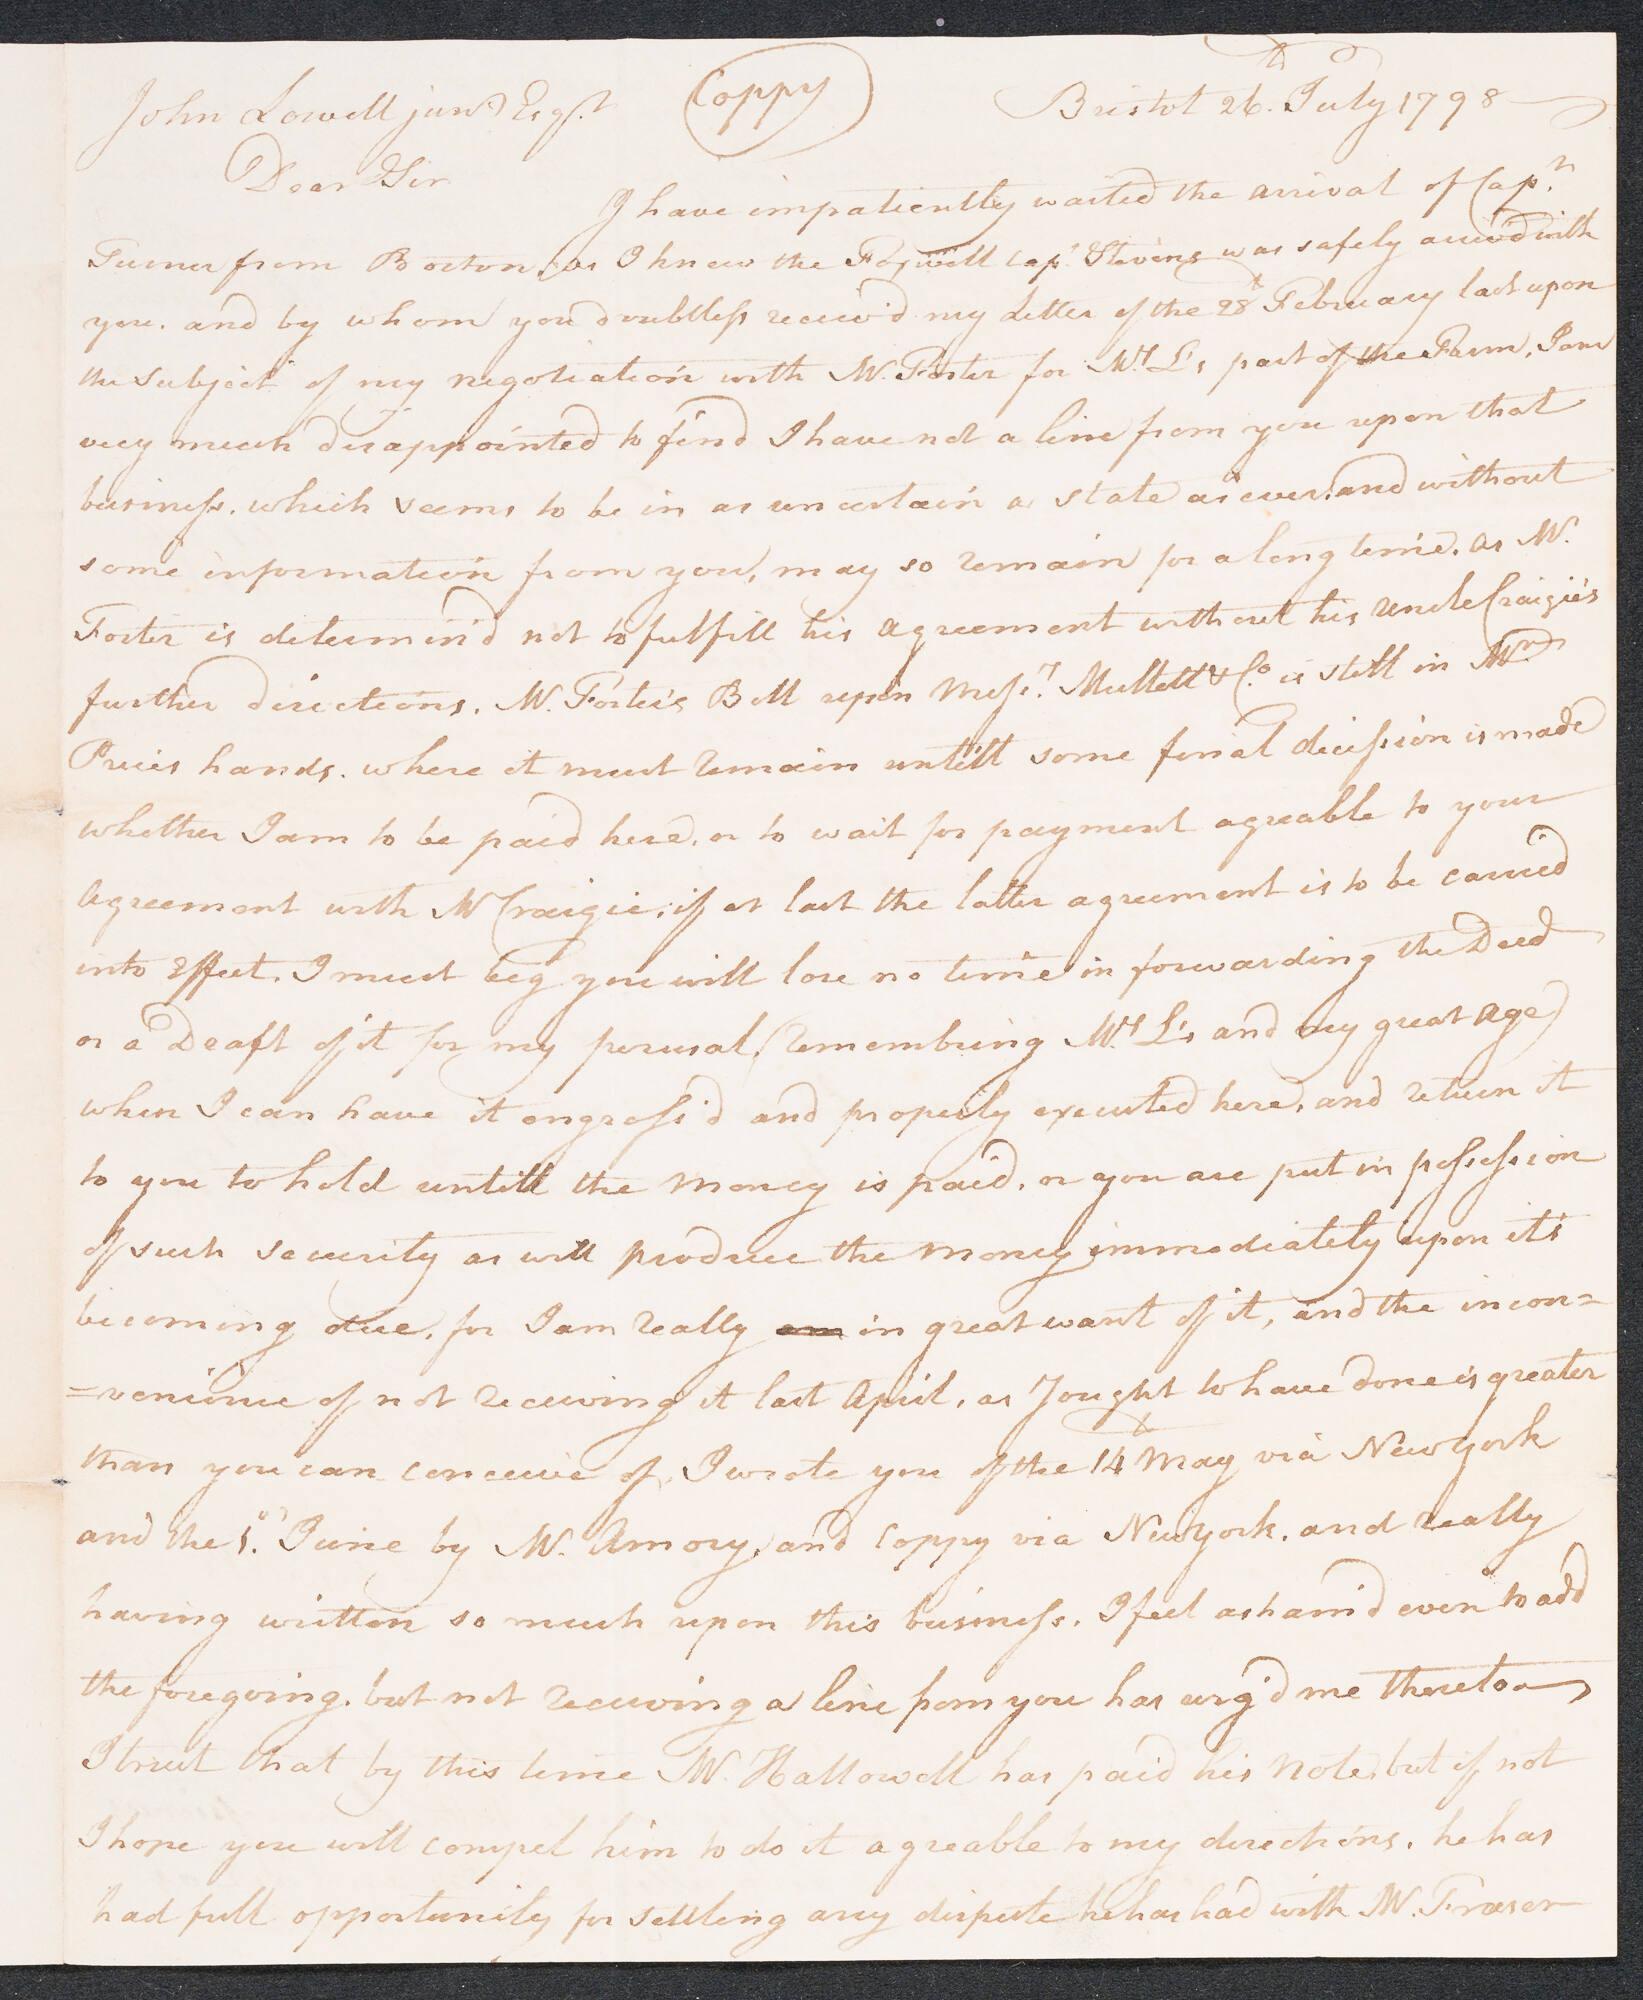 John Lowell junr. Esqr. Coppy Bristol 26th. July 1798
Dear Sir
I have impatiently waited the arrival of Capn.
Turner from Boston, as I knew the Foxwell Capt. Stevens was safely arriv'd with
you. and by whom you doubtless receiv'd my Letter of the 28th February last upon
the Subject of my negotiation with Mr. Foster for Mrs. L's part of the Farm, I am
very much disappointed to find I have not a line from you upon that
business. which seems to be in as uncertain a state as ever, and without
some information from you, may so remain for a long time. as Mr.
Foster is determin'd not to fulfill his agreement without his Uncle Craigie's
further directions. Mr. Foster's Bill upon Messrs. Mullett & Co. is still in Mr.
Prices hands. where it must remain untill some final decission is made
whether I am to be paid here. or to wait for payment agreable to your
Agreement with Mr Craigie; if at last the latter agreement is to be carried
into Effect. I must beg you will lose no time in forwarding the Deed
or a Draft of it for my perusal, (remembring Mrs. L's and my great age)
when I can have it engross'd and properly executed here, and return it
to you to hold untill the money is paid. or you are put in possession
of such security as will produce the money immediately upon its
becoming due. for I am really am in great want of it, and the incon=
=venience of not receiving it last April. as I ought to have done is greater
than you can conceive of. I wrote you of the 14th May via New york
and the 1st. June by Mr. Amory, and Coppy via New york. and really
having written so much upon this business. I feel asham'd even to add
the foregoing. but not receiving a line from you has urg'd me thereto
I trust that by this time Mr. Hallowell has paid his note, but if not
I hope you will compel him to do it agreable to my directions. he has
had full opportunity for settling any dispute he has had with Mr. Fraser